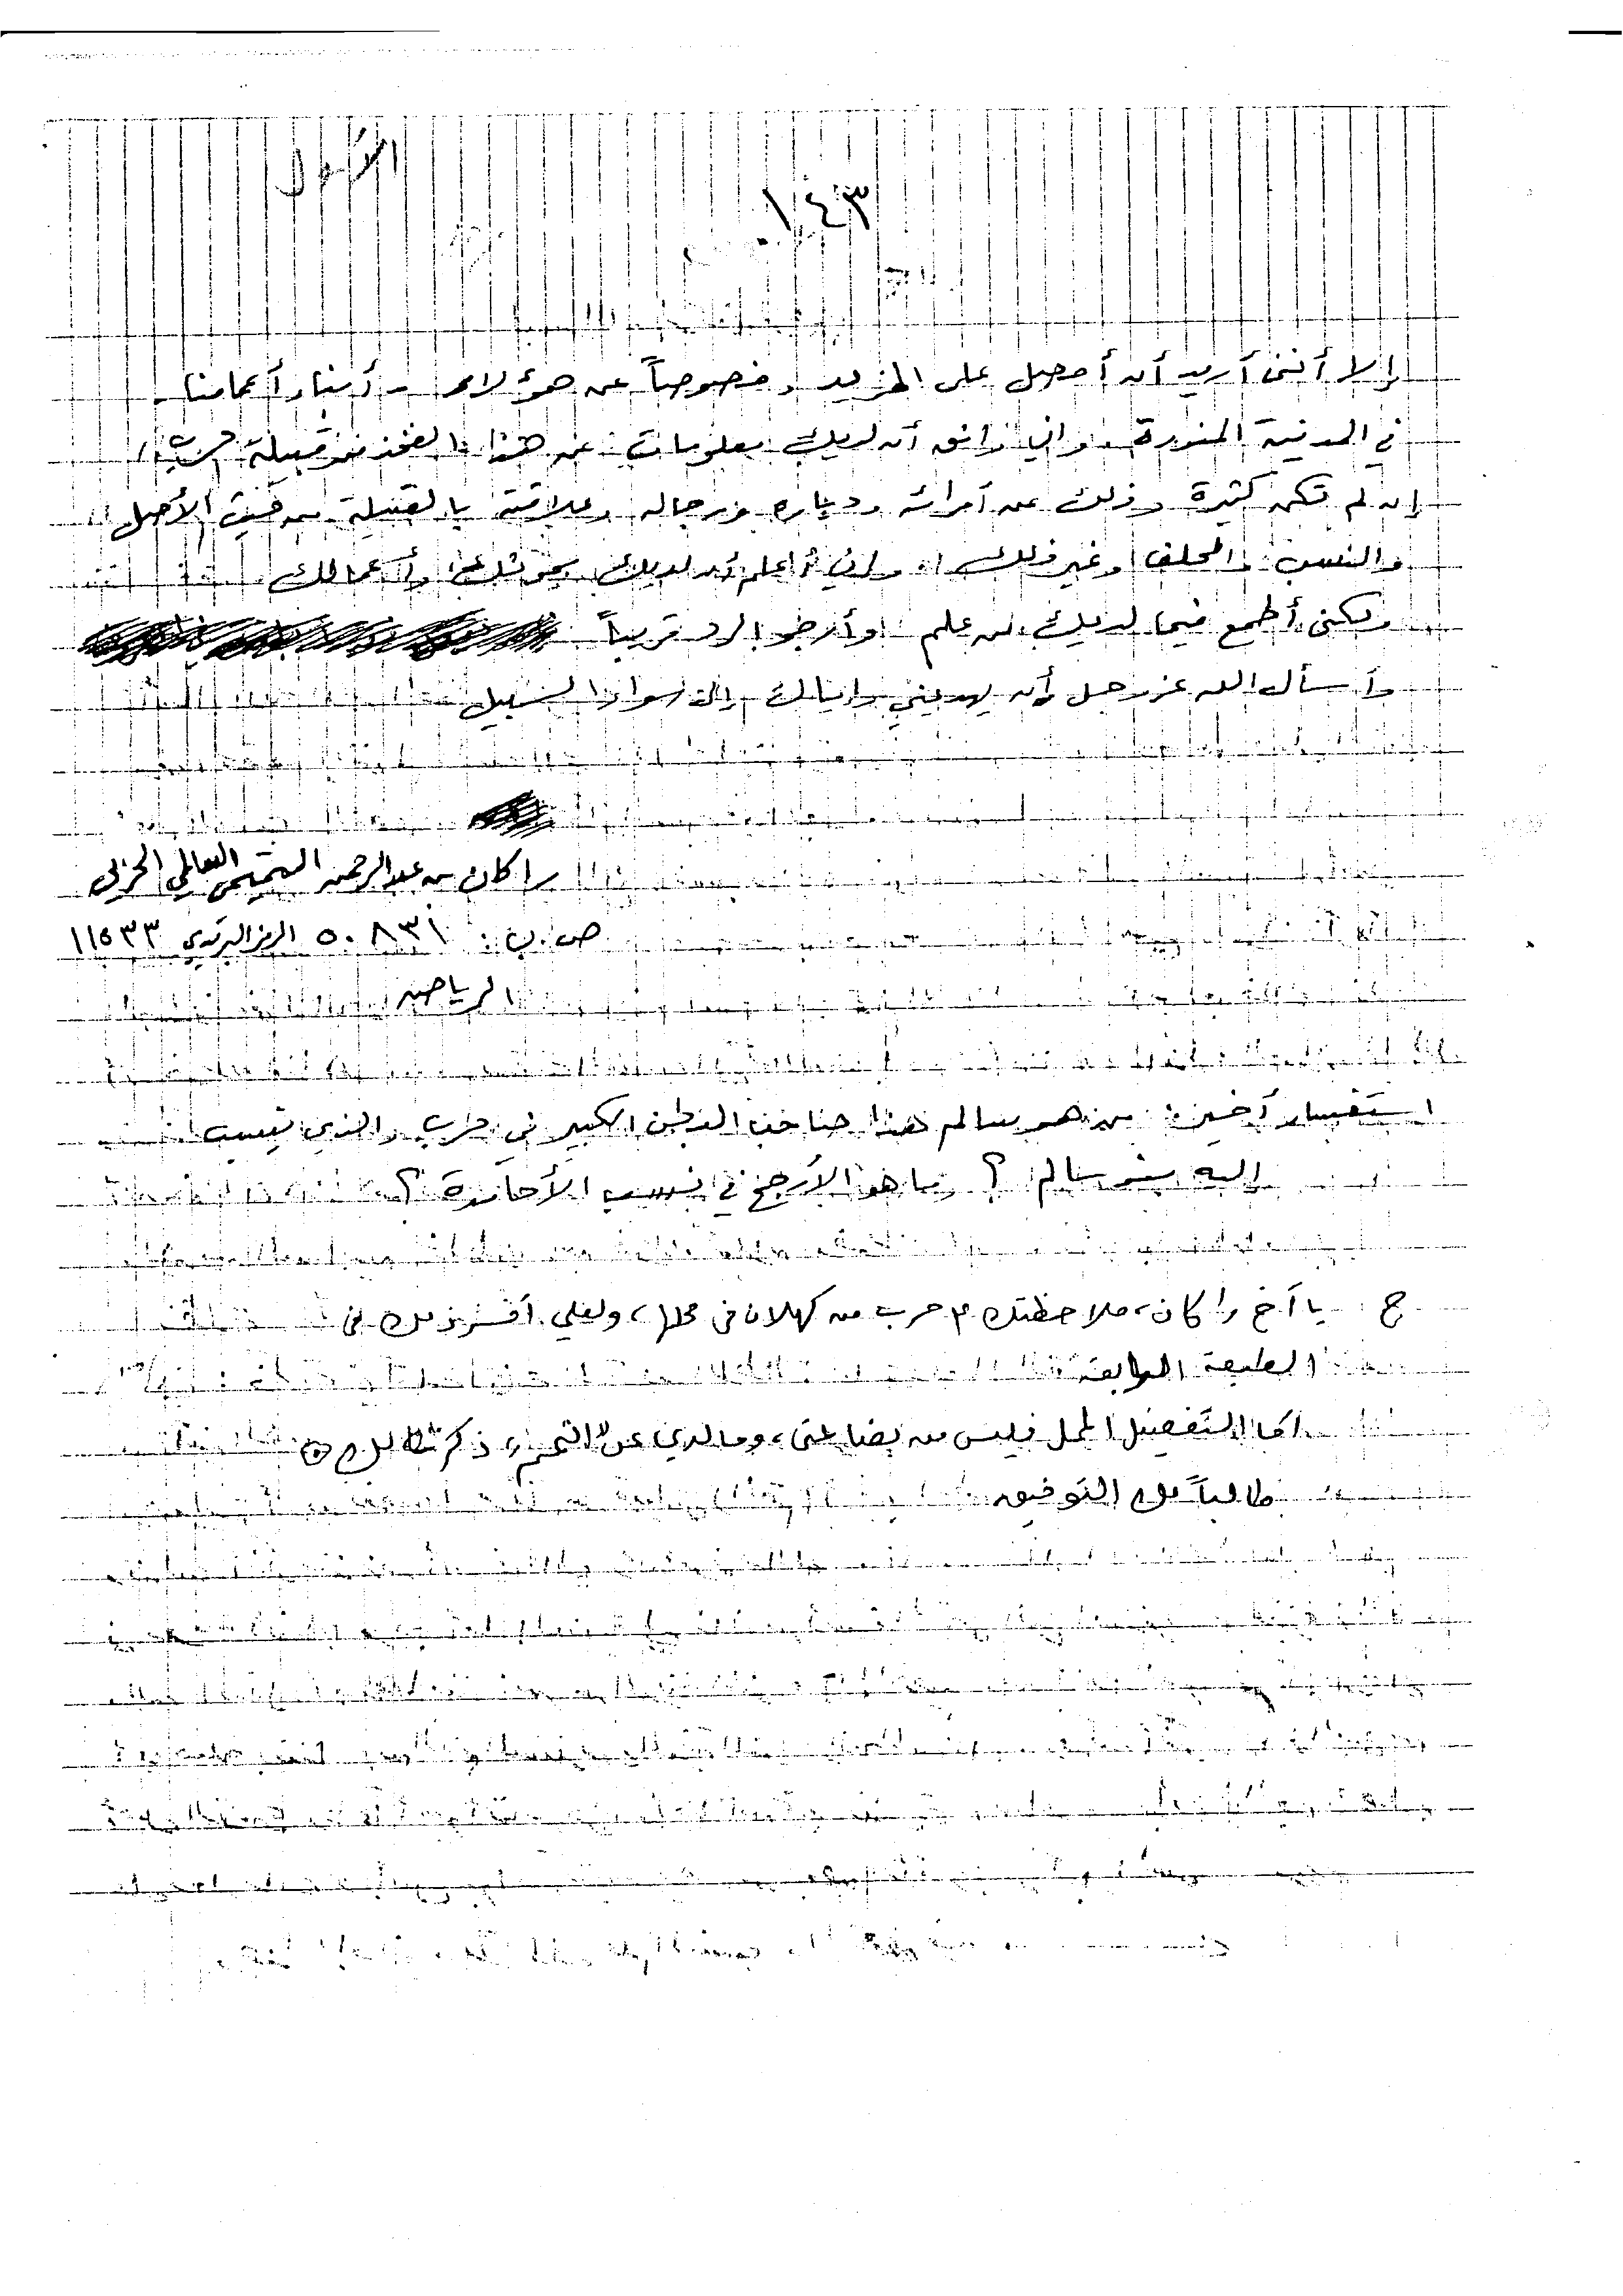 ١٤٣
إلا أنني أريد أن أحصل على المزيد وخصوصاً عن هؤلاء - أبناء أعمامنا -
في المدينة المنورة وإني واثق أن لديك معلومات عن هذا الفخذ من قبيلة حرب
إن لم تكن كثيرة وذلك عن أمرائه ودياره ورجاله وعلاقته بالقبيلة من حيث الأصل
والنسب والحلف وغير ذلك وإني أعلم أن لديك وأعمالك
ولكني أطمع فيما لديك من علم وأرجو الرد قريباً
وأسأل الله عز وجل أن يهديني وإياك إلى سواء السبيل
راكان بن عبدالرحمن التميمي السالمي الحربي
ص.ب: ٥٠٨٣١ الرمز البريدي ١١٥٣٣
الرياض
استفسار أخير: من هو سالم هذا البطن الكبير في حرب والذي ينسب
إليه بنو سالم؟ وما هو الأرجح في نسب الأحامدة؟
ج: يا أخ راكان، ملاحظتك حرب من كهلان في محلها، ولعلي في
الطبعة الرابعة
أما التفصيل الممل فليس من بضاعتي، وما لدي عن التمم ذكرته لك
طالباً لك التوفيق